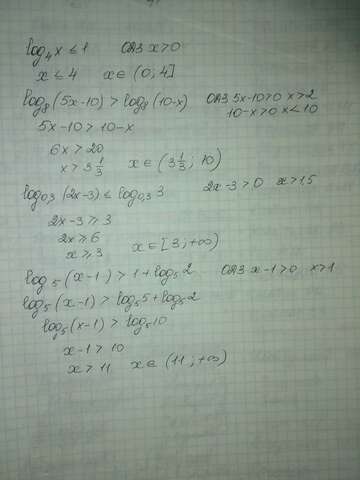 log₄x ≤ 1 ОДЗ x>0
x ≤ 4 x∈(0; 4]
log₈(5x-10) > log₈(10-x) ОДЗ 5x-10>0 x>2
10-x>0 x<10
5x-10 > 10-x
6x > 20
x > 3 1/3 x∈(3 1/3; 10)
log₀,₃(2x-3) ≤ log₀,₃ 3 2x-3>0 x>1,5
2x-3 ≥ 3
2x ≥ 6
x ≥ 3 x∈[3; +∞)
log₅(x-1) > 1+log₅2 ОДЗ x-1>0 x>1
log₅(x-1) > log₅5+log₅2
log₅(x-1) > log₅10
x-1 > 10
x > 11 x∈(11; +∞)